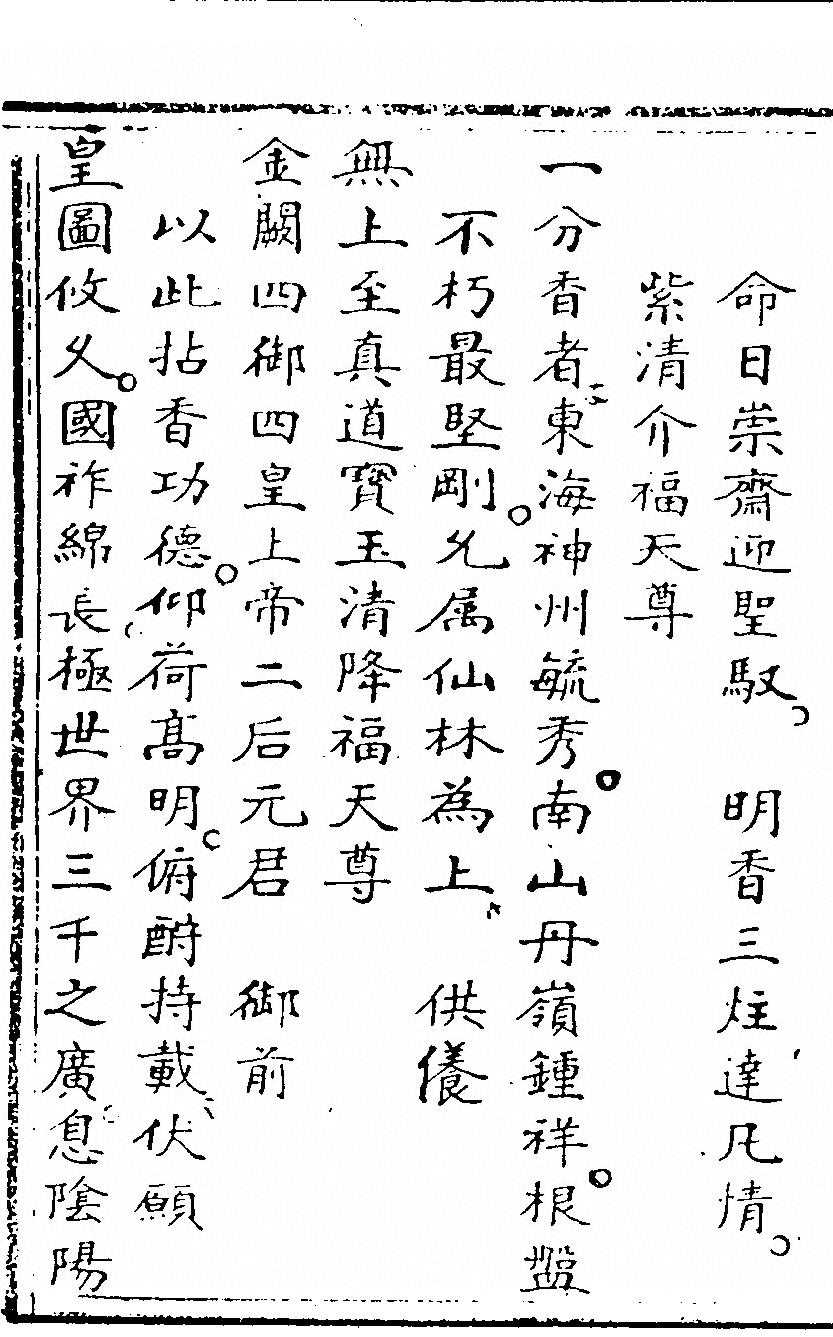 命日崇齋迎聖馭　明香三炷達凡情
紫清介福天尊
一分香者東海神州毓秀南山丹嶺鍾祥根盤
不朽最堅剛允属仙林為上　供養
無上至真道寳玉清降福天尊
金闕四御四皇上帝二后元君　御前
以此拈香功德仰荷髙明俯酧持載伏願
皇圖攸久國祚綿長極世界三千之廣息陰陽